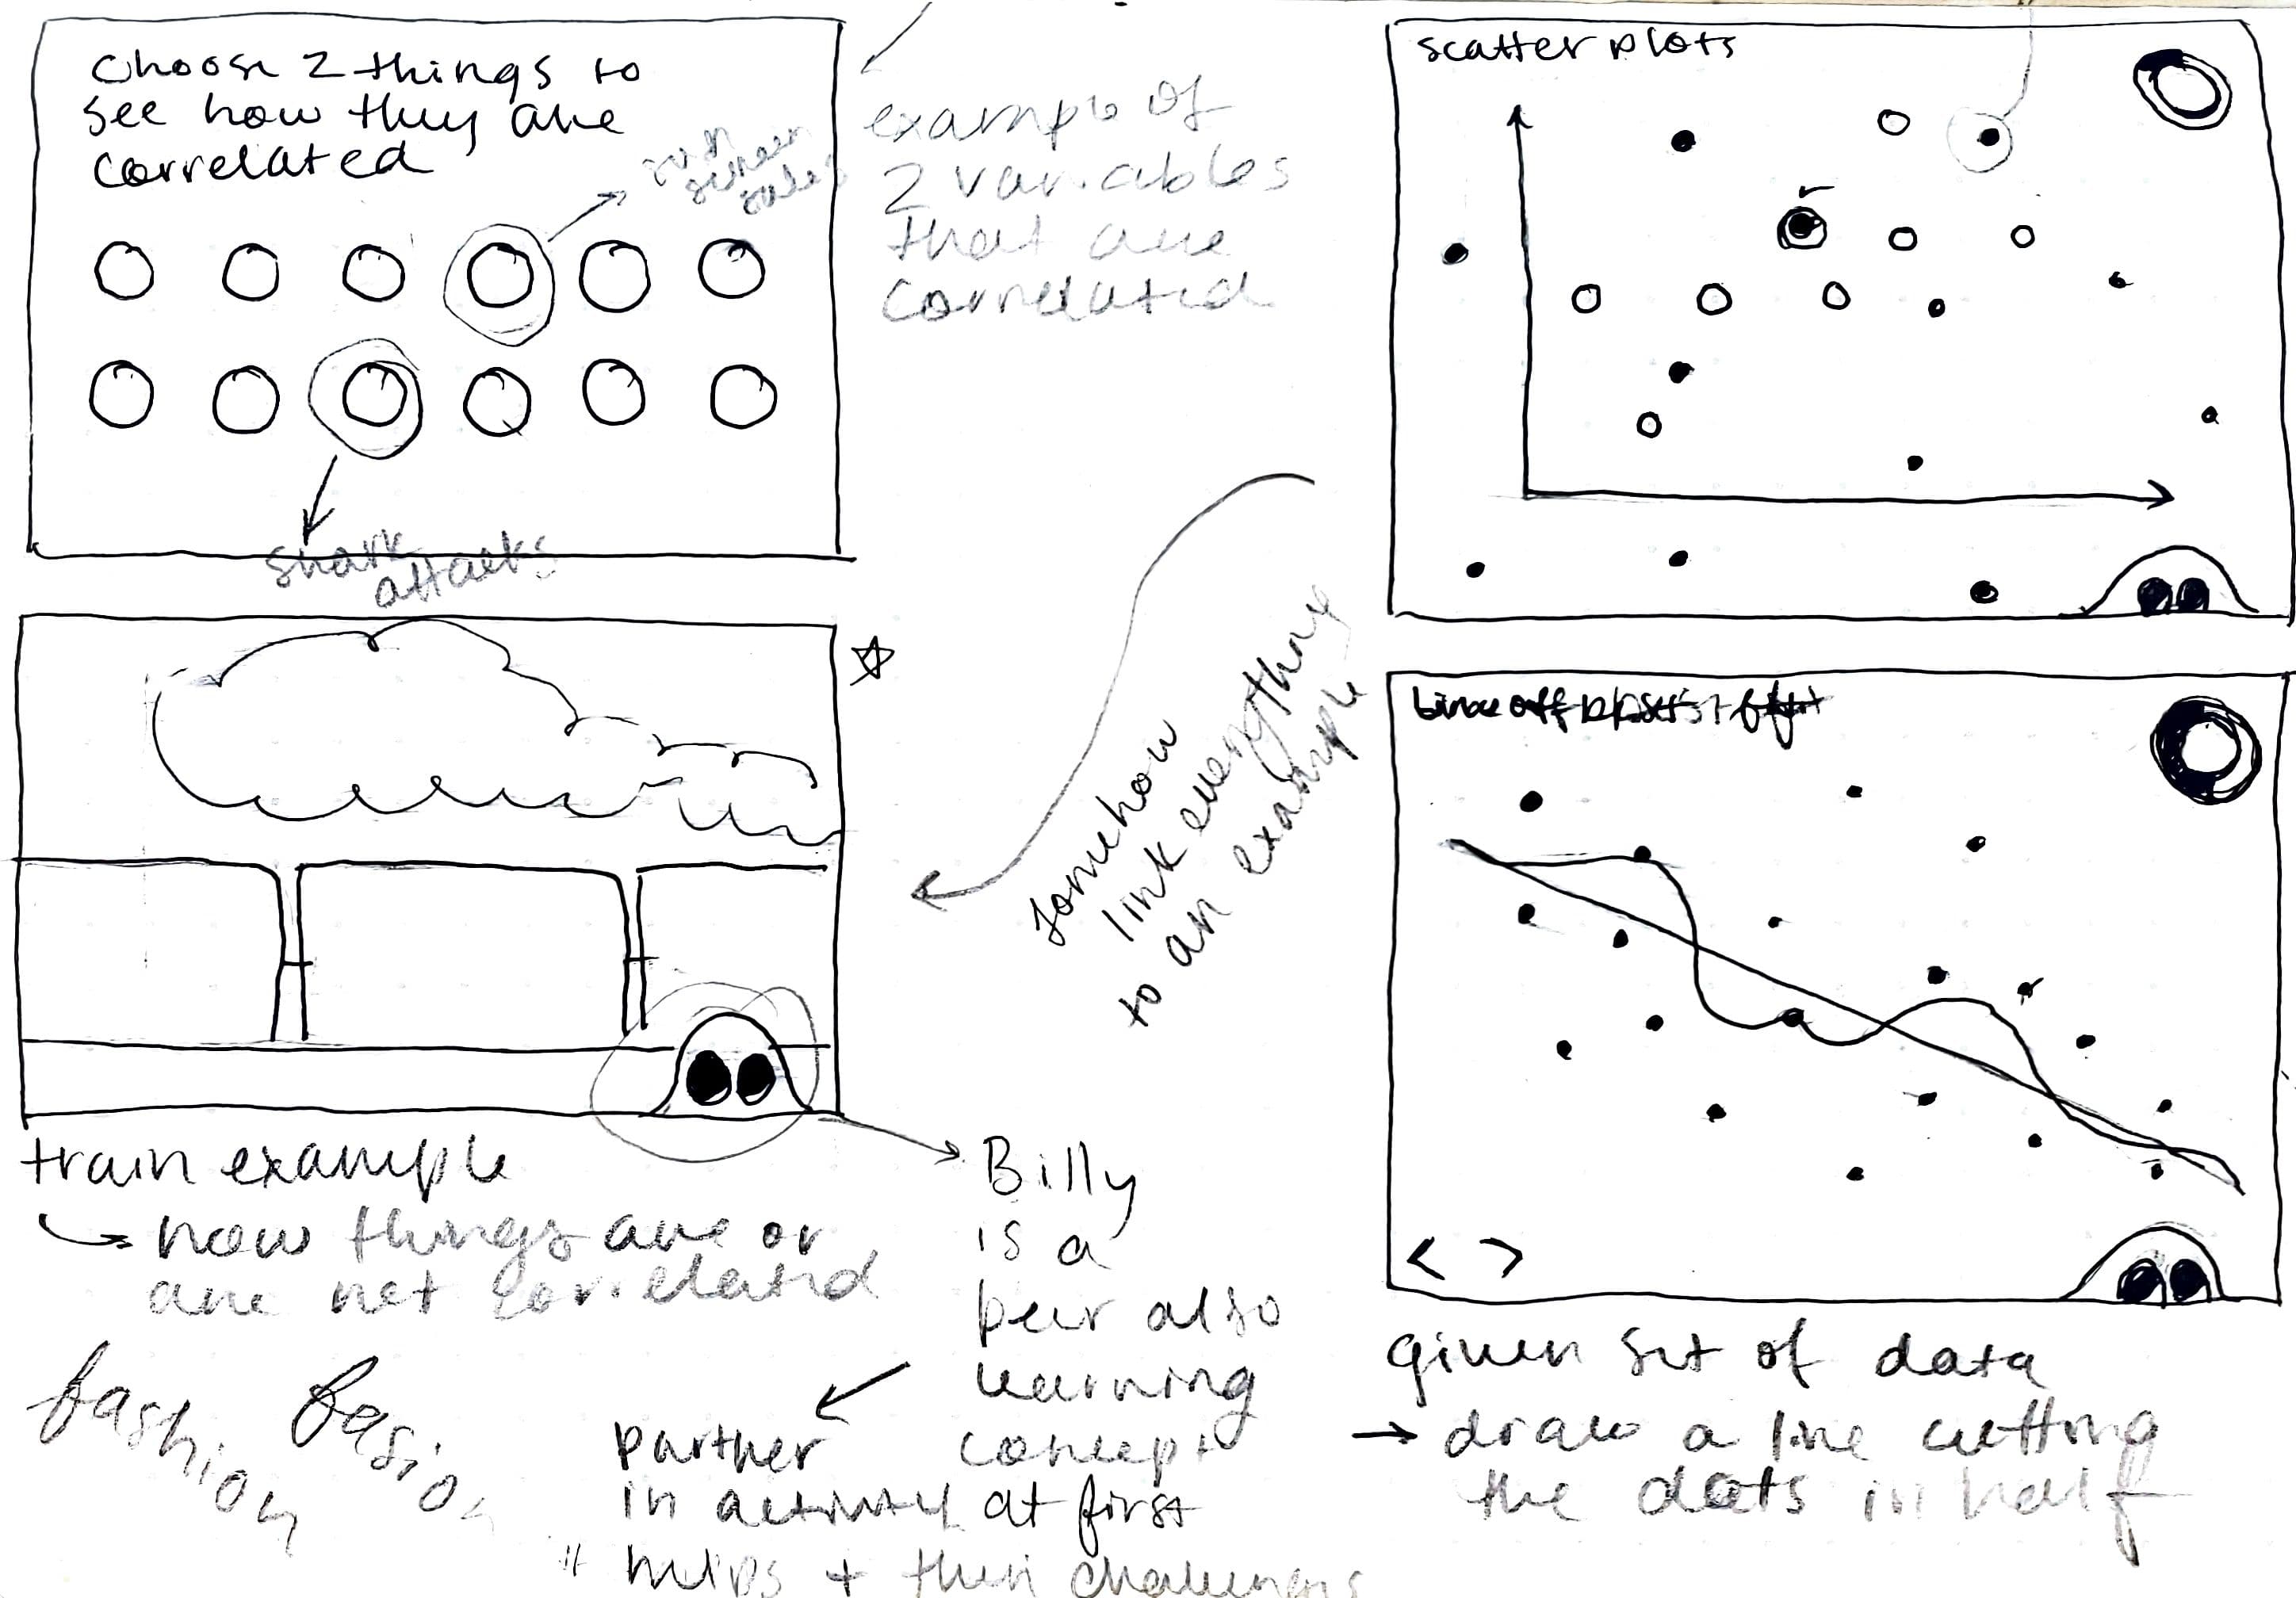 choose 2 things to
see how they are
correlated
sun
screen
sales
shark
attacks
example of
2 variables
that are
correlated
scatter plots
somehow
link everything
to an example
train example
how things are or
are not correlated
Billy
is a
peer also
learning
concept
at first
partner
in activity
helps + then challenges
fashion fasion
line of best fit
given set of data
→ draw a line cutting
the dots in half